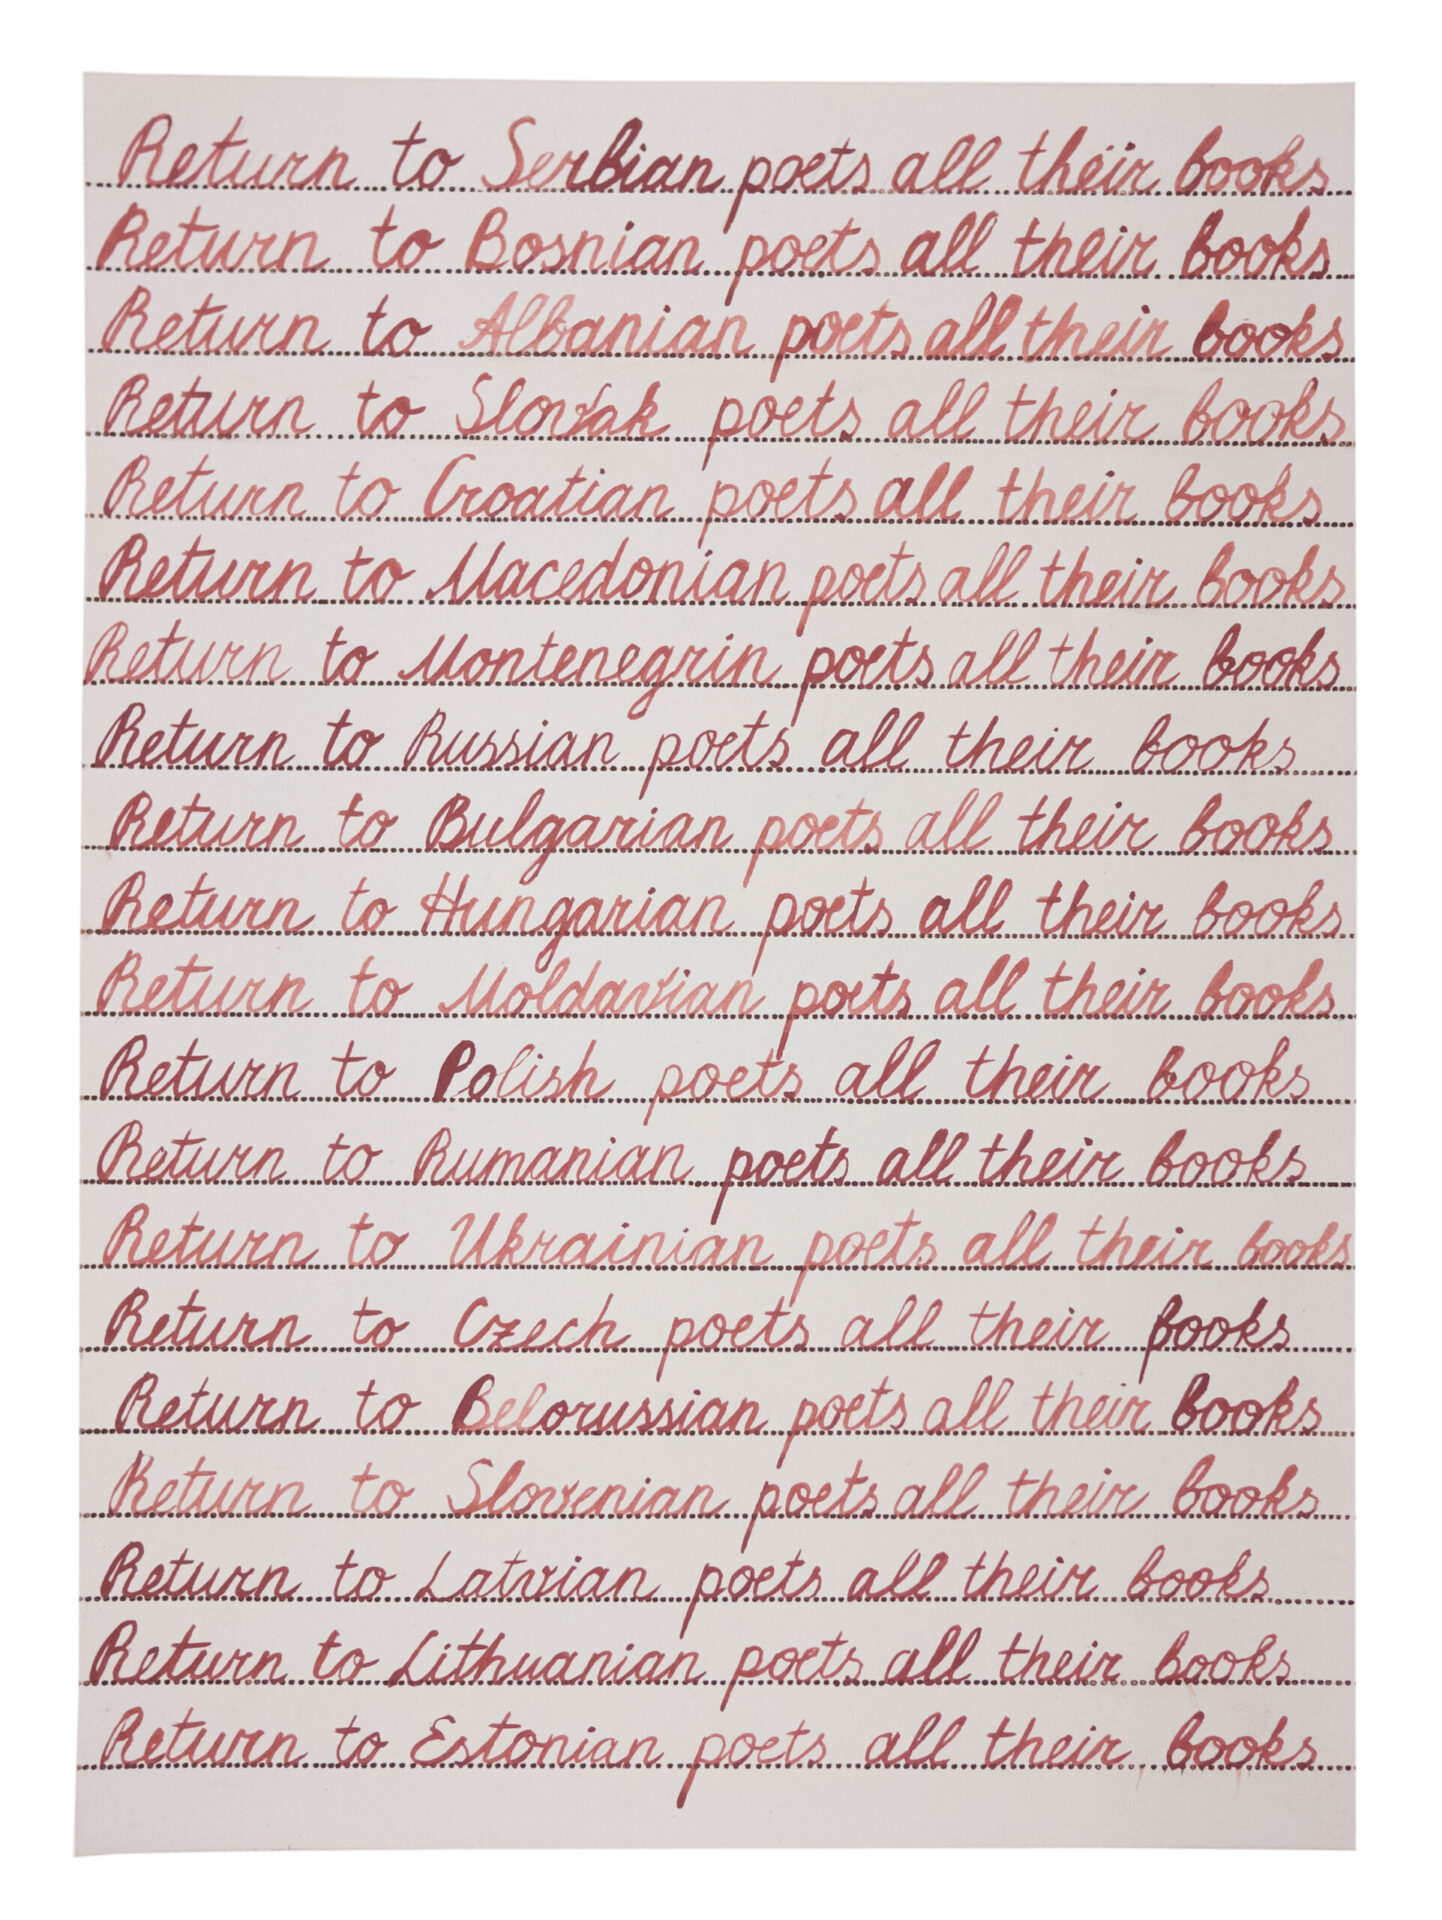 Return to Serbian poets all their books
Return to Bosnian poets all their books
Return to Albanian poets all their books
Return to Slovak poets all their books
Return to Croatian poets all their books
Return to Macedonian poets all their books
Return to Montenegrin poets all their books
Return to Russian poets all their books
Return to Bulgarian poets all their books
Return to Hungarian poets all their books
Return to Moldavian poets all their books
Return to Polish poets all their books
Return to Rumanian poets all their books
Return to Ukrainian poets all their books
Return to Czech poets all their books
Return to Belorussian poets all their books
Return to Slovenian poets all their books
Return to Latvian poets all their books
Return to Lithuanian poets all their books
Return to Estonian poets all their books